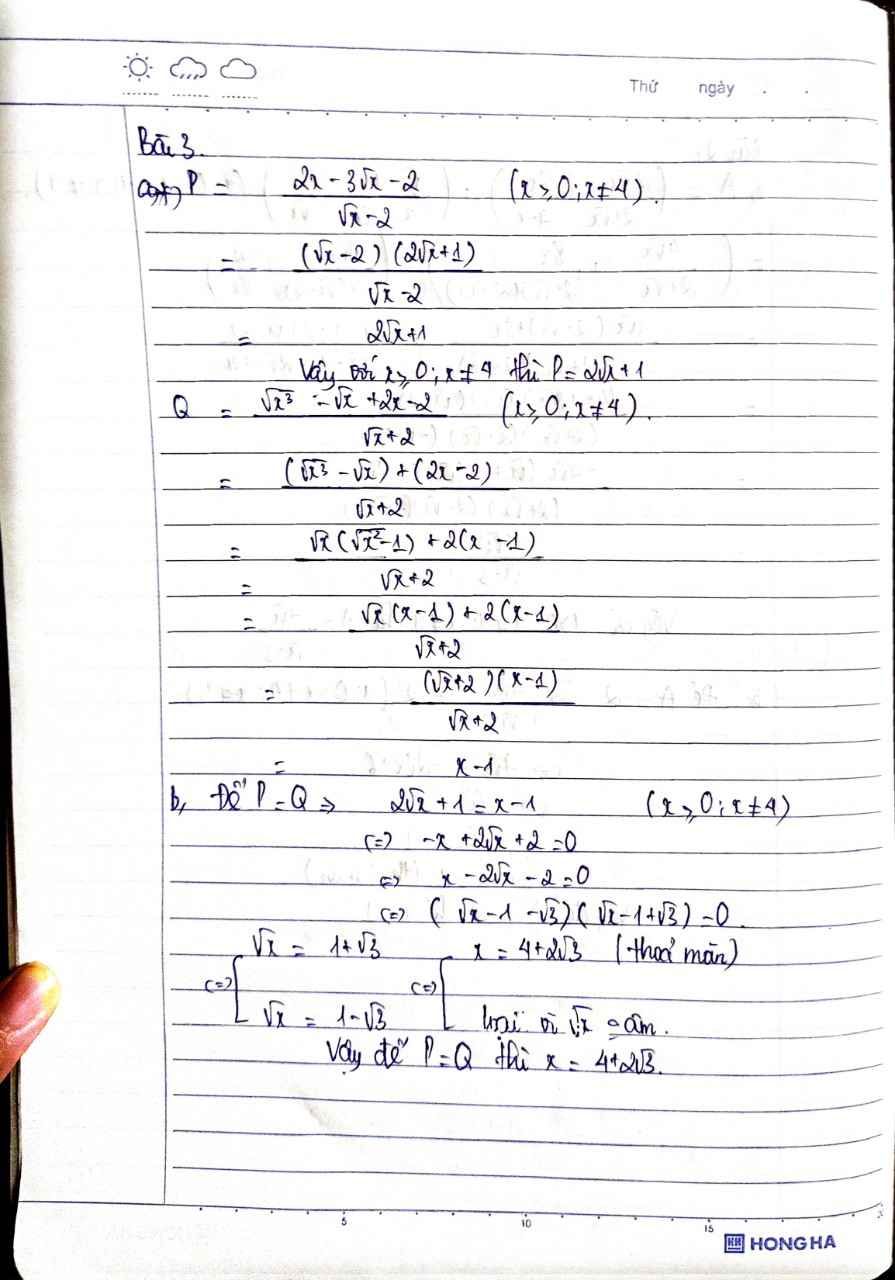 Thứ ngày . .
Bài 3.
P = (2x - 3√x - 2)/(√x - 2) (x ≥ 0; x ≠ 4).
= ((√x - 2)(2√x + 1))/(√x - 2)
= 2√x + 1
Vậy với x ≥ 0; x ≠ 4 thì P = 2√x + 1
Q = (√x³ - √x + 2x - 2)/(√x + 2) (x ≥ 0; x ≠ 4).
= ((√x³ - √x) + (2x - 2))/(√x + 2)
= (√x(√x² - 1) + 2(x - 1))/(√x + 2)
=
= (√x(x - 1) + 2(x - 1))/(√x + 2)
= ((√x + 2)(x - 1))/(√x + 2)
= x - 1
b, Để P = Q => 2√x + 1 = x - 1 (x ≥ 0; x ≠ 4)
<=> -x + 2√x + 2 = 0
<=> x - 2√x - 2 = 0
<=> (√x - 1 - √3)(√x - 1 + √3) = 0.
<=> [ √x = 1 + √3 <=> [ x = 4 + 2√3 (thoả mãn)
√x = 1 - √3 loại vì √x âm.
Vậy để P = Q thì x = 4 + 2√3.
5 10 15
HH HONG HA